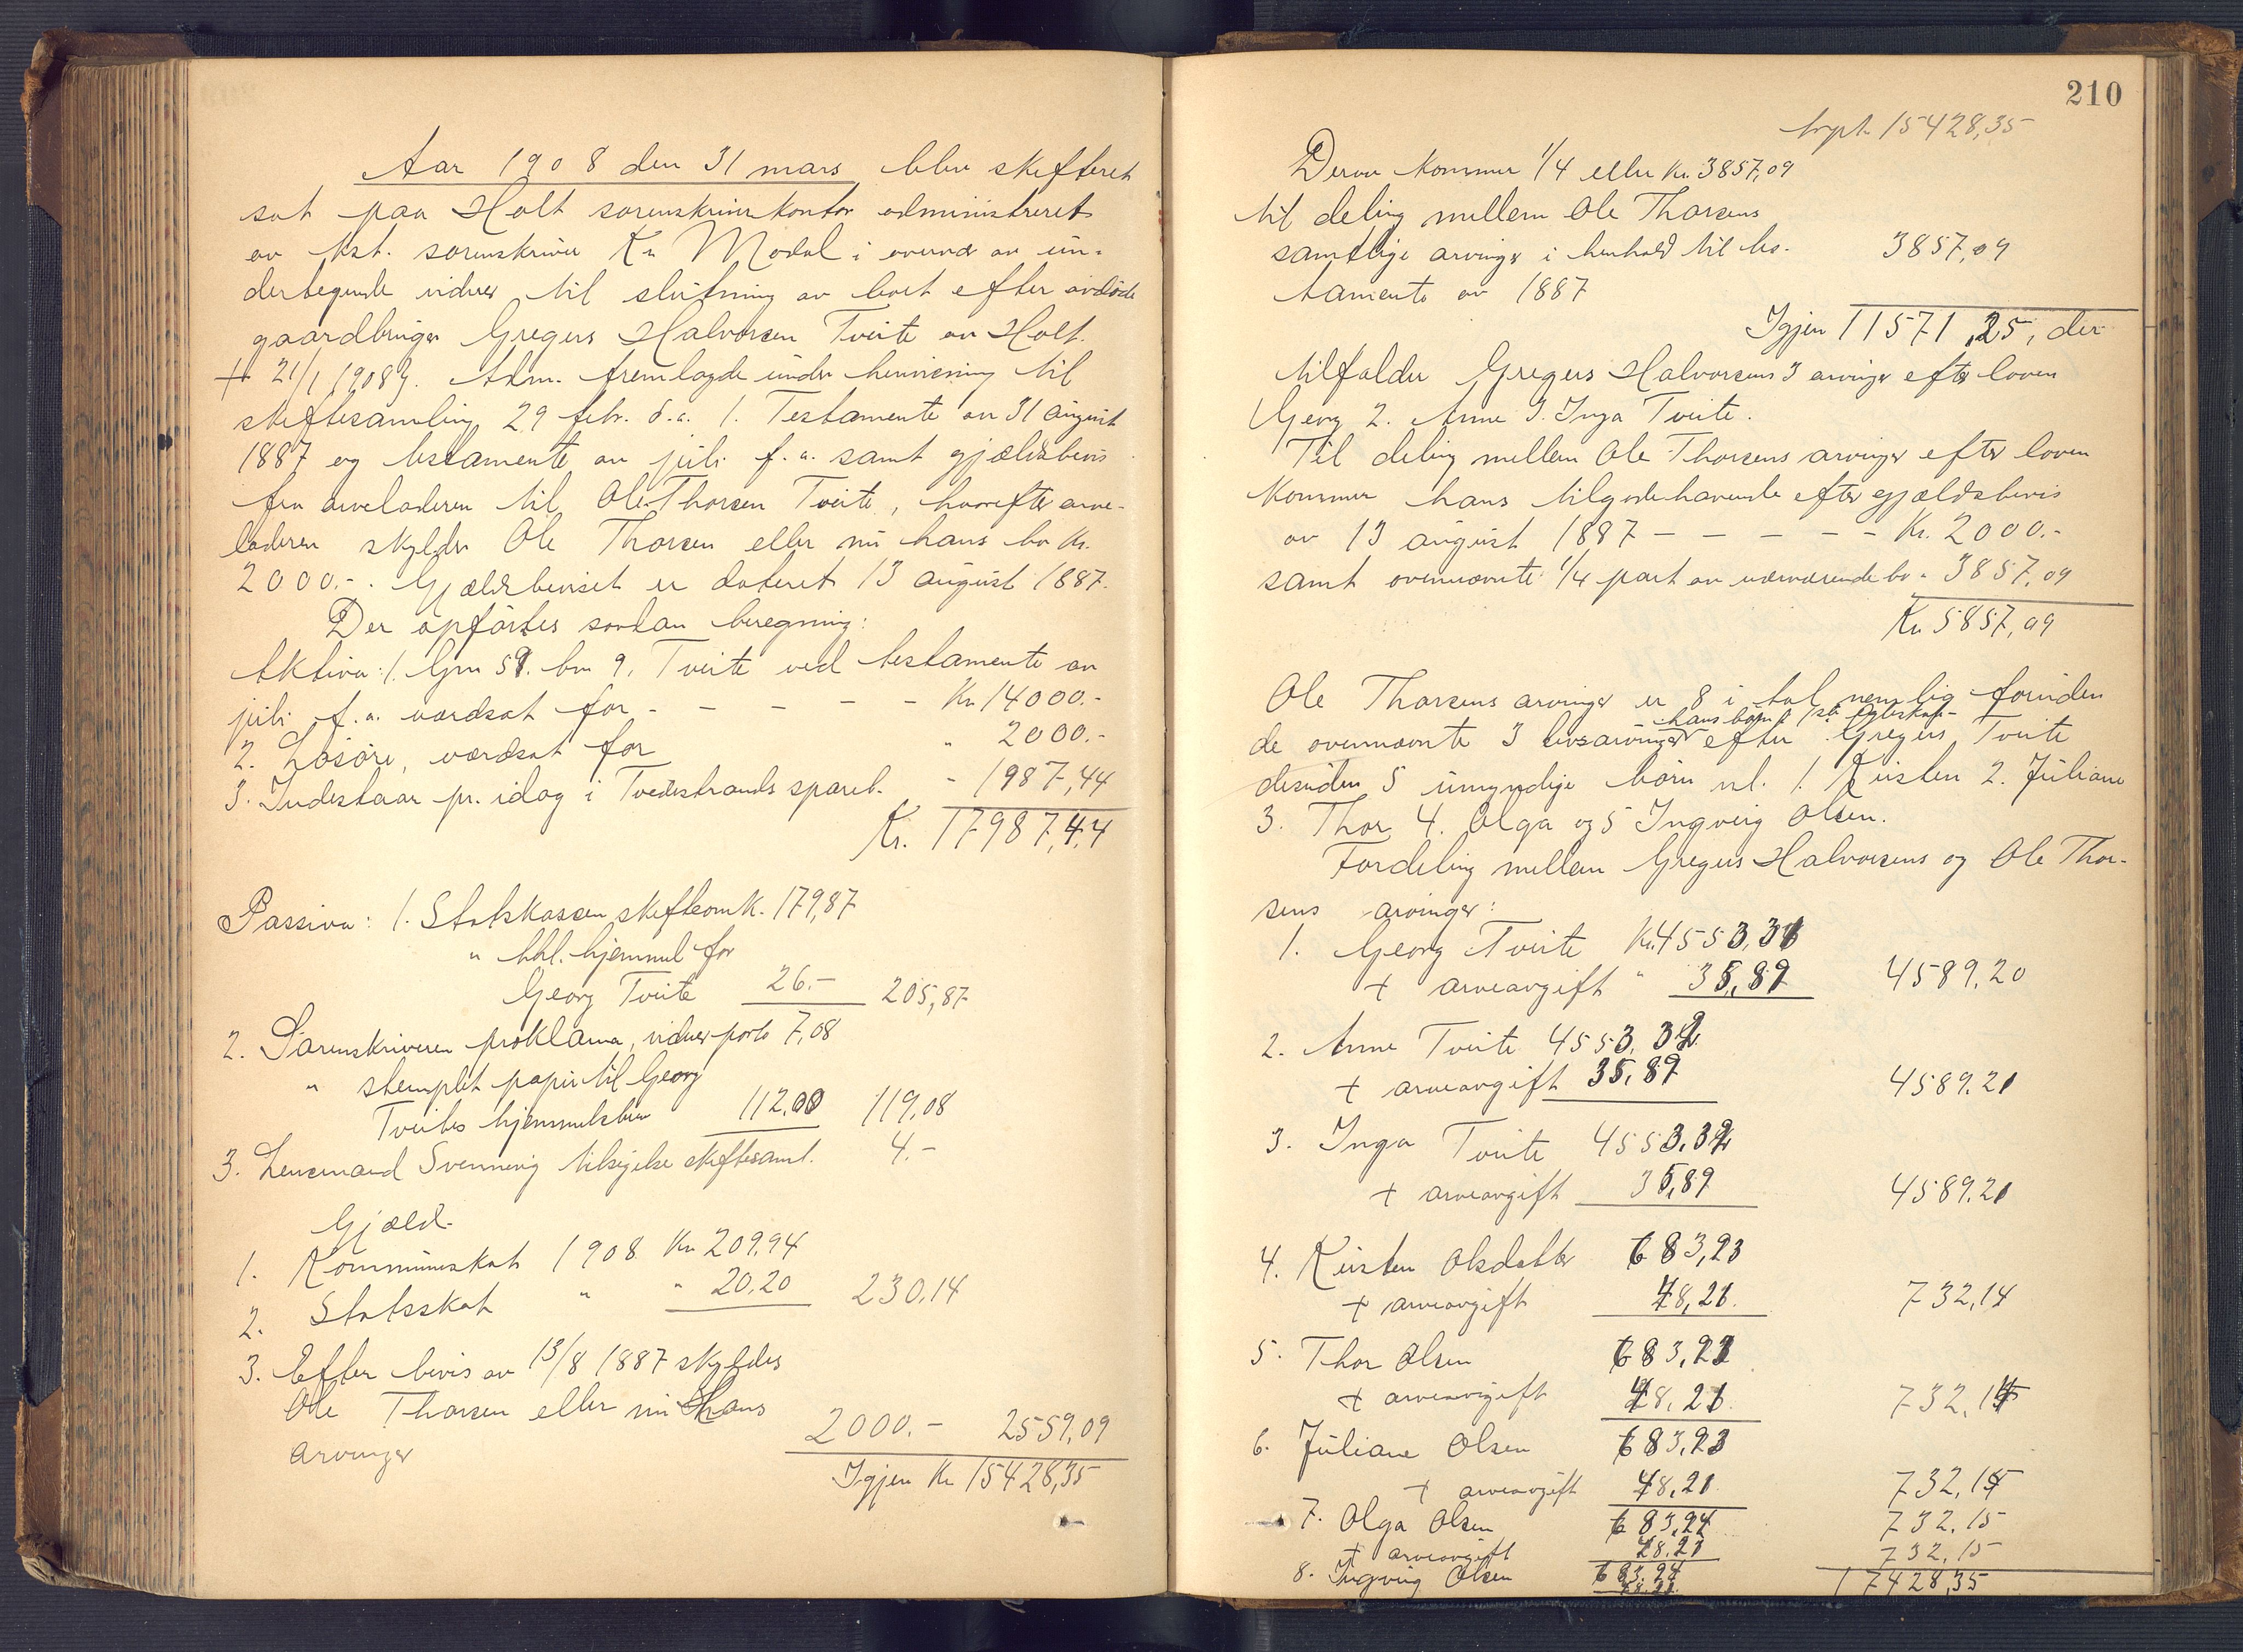 Aar 1908 den 31 mars blev skifteret
sat paa Holt sorenskriverkontor administreret
av kst. sorenskriver Kr. Modal i overvær av un-
dertegnede vidner til slutning av boet efter avdöde
gaardbruger Gregers Halvorsen Tveite av Holt.
+ 21/1 1908. Adm. fremlagde under henvisning til
skiftesamling 29 febr. d.a. 1. Testamente av 31 august
1887 og testamente av juli f.a. samt gjældsbevis
fra arveladeren til Ole Thorsen Tveite, hvorefter arve-
laderen skylder Ole Thorsen eller nu hans bo Kr.
2000.-. Gjældsbeviset er dateret 13 august 1887.
Der opförtes saadan beregning:
Aktiva: 1. Gnr 59. bnr 9. Tveite ved testamente av
juli f.a. værdsat for - - - - - Kr 14000.-
2. Lösöre, værdsat for " 2000.-
3. Indestaar pr. idag i Tvedestrands spareb. - 1987,44
Kr. 17987,44
Passiva: 1. Statskassen skifteomk. 179,87
" tthl. hjemmel for
Georg Tveite 26.- 205,87
2. Sorenskriveren proklama, vidner porto 7,08
" stemplet papir til Georg
Tveites hjemmelsbrev 112.00 119,08
3. Lensmand Svennevig tilsigelse skiftesaml. 4.-
Gjæld
1. Kommuneskat 1908 Kr 209.94
2. Statsskat " " 20.20 230.14
3. Efter bevis av 13/8 1887 skyldes
Ole Thorsen eller nu hans
arvinger 2000.- 2559,09
Igjen Kr 15428,35
210
trspt. 15428,35
Derav kommer 1/4 eller Kr. 3857,09
til deling mellem Ole Thorsens
samtlige arvinger i henhold til tes-
tamente av 1887 3857,09
Igjen 11571,25, der
tilfalder Gregers Halvorsens 3 arvinger efter loven
Georg 2. Anne 3. Inga Tveite.
Til deling mellem Ole Thorsens arvinger efter loven
kommer hans tilgodehavende efter gjældsbevis
av 13 august 1887 - - - - - Kr. 2000.-
samt ovennævnte 1/4 part av nærværende bo - 3857,09
Kr 5857,09
Ole Thorsens arvinger er 8 i tal nemlig foruden
hans börn i 1ste egteskap
de ovennævnte 3 livsarvinger efter Gregers Tveite
desuden 5 umyndige börn nl. 1. Kirsten 2. Juliane
3. Thor 4. Olga og 5 Ingveig Olsen.
Fordeling mellem Gregers Halvorsens og Ole Thor-
sens arvinger:
1. Georg Tveite Kr. 4553,31
+ arveavgift " 35,89 4589,20
2. Anne Tveite 4553.32
+ arveavgift 35,89 4589.21
3. Inga Tveite 4553.32
+ arveavgift 35,89 4589.21
4. Kirsten Olsdatter 683,93
+ arveavgift 48,21 732,14
5. Thor Olsen 683,93
+ arveavgift 48,21 732,14
6. Juliane Olsen 683,93
+ arveavgift 48,21 732,14
7. Olga Olsen 683,94 732.15
+ arveavgift 48.21 732.15
8. Ingveig Olsen 683.94 17428,35
48.21